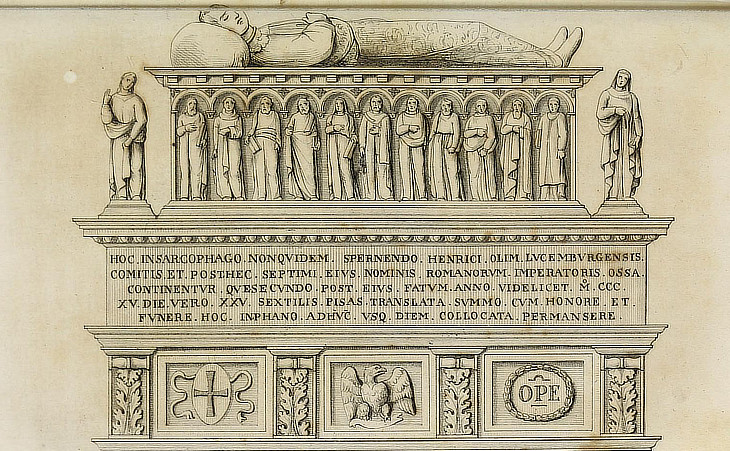 HOC. INSARCOPHAGO. NONQVIDEM. SPERNENDO. HENRICI. OLIM. LVCEMBVRGENSIS.
COMITIS. ET. POSTHEC. SEPTIMI. EIVS. NOMINIS. ROMANORVM. IMPERATORIS. OSSA.
CONTINENTVR. QVESECVNDO. POST. EIVS. FATVM. ANNO. VIDELICET. M̊. CCC.
XV. DIE. VERO. XXV. SEXTILIS. PISAS. TRANSLATA. SVMMO. CVM. HONORE. ET.
FVNERE. HOC. INPHANO. ADHVC̄. VSQ. DIEM. COLLOCATA. PERMANSERE.
OPE